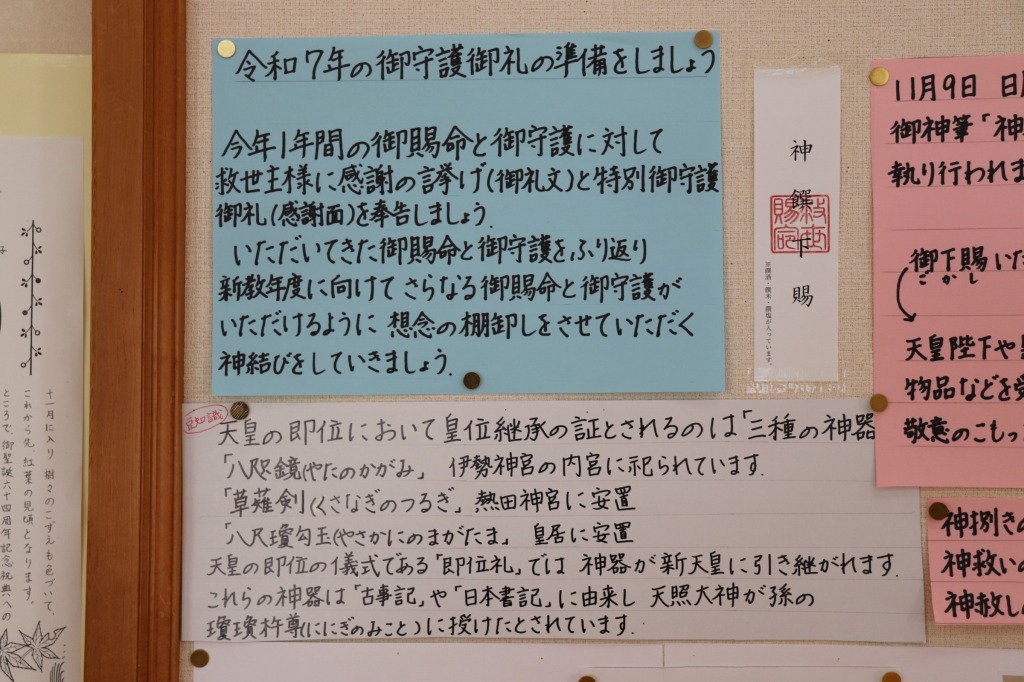 令和7年の御守護御礼の準備をしましょう
今年1年間の御賜命と御守護に対して
救世主様に感謝の言挙げ(御礼文)と特別御守護
御礼(感謝面)を奉告しましょう.
いただいてきた御賜命と御守護をふり返り
新教年度に向けてさらなる御賜命と御守護が
いただけるように 想念の棚卸しをさせていただく
神結びをしていきましょう.
神饌下賜
救世
賜宛
※饌酒・饌米・饌塩が入っています。
11月9日 日
御神筆「神
執り行われま
御下賜いた
ごかし
天皇陛下や
物品などを受
敬意のこもっ
豆知識
天皇の即位において皇位継承の証とされるのは「三種の神器
「八咫鏡(やたのかがみ」 伊勢神宮の内宮に祀られています.
「草薙剣(くさなぎのつるぎ」 熱田神宮に安置
「八尺瓊勾玉(やさかにのまがたま」 皇居に安置
天皇の即位の儀式である「即位礼」では 神器が新天皇に引き継がれます.
これらの神器は「古事記」や「日本書記」に由来し 天照大神が孫の
瓊瓊杵尊(ににぎのみこと)に授けたとされています.
神捌きの
神救いの
神赦しの
十一月に入り 樹々のこずえも色づいて、
これから先、紅葉の見頃となります。
ところで、御聖誕六十四周年記念祝典への